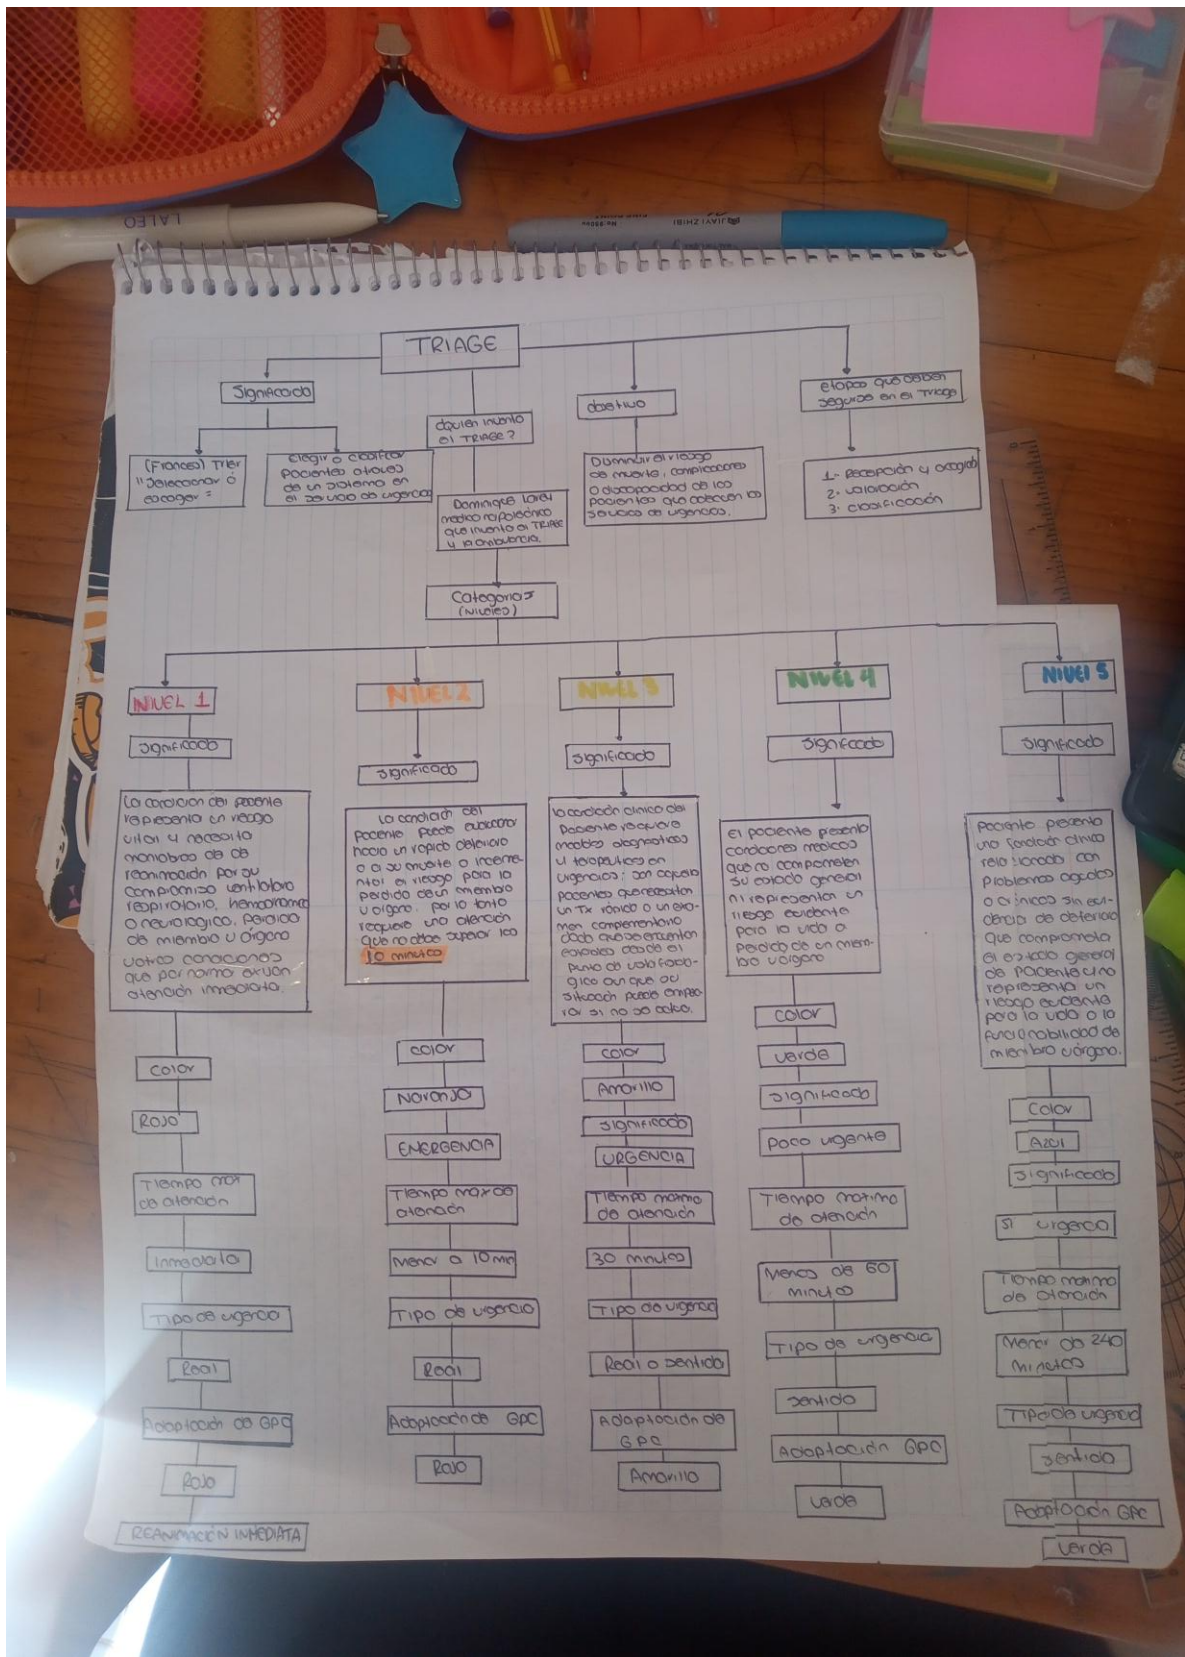 LALEO
JIAYI ZHIBI
TRIAGE
Significado
(Frances) Trier
"Seleccionar ó
escoger"
Elegir o clasificar
pacientes a traves
de un sistema en
el servicio de urgencias
dquien invento
el TRIAGE?
Dominique Larei
medico napoleónico
que invento el TRIAGE
y la ambulancia.
Categorias
(Niveles)
objetivo
Disminuir el riesgo
de muerte, complicaciones
o discapacidad de los
pacientes que
servicios de urgencias.
etapas que deben
seguirse en el Triage
1- Recepción y acogida
2- valoración
3- clasificación
NIVEL 1
Significado
La condicion del paciente
representa un riesgo
vital y necesita
maniobras de de
reanimación por su
compromiso ventilatorio
respiratorio, hemodinamico
o neurologico, perdida
de miembro u órgano
u otras condiciones
que por norma exijan
atención inmediata.
Color
Rojo
Tiempo max
de atención
Inmediata
Tipo de urgencia
Real
Adaptación de GPC
Rojo
REANIMACIÓN INMEDIATA
NIVEL 2
Significado
La condicion del
paciente puede evolucionar
hacia un rapido deterioro
o a su muerte o incremen-
tar el riesgo para la
perdida de un miembro
u órgano. por lo tanto
requiere una atención
que no debe superar los
10 minutos
color
Naranja
EMERGENCIA
Tiempo max de
atención
Menor a 10 min
Tipo de urgencia
Real
Adaptación de GPC
Rojo
NIVEL 3
Significado
la condición clinica del
paciente requiere
medidas diagnosticas
y terapeuticas en
urgencias: son aquellos
pacientes que necesitan
un Tx rápido o un exa-
men complementario
dado que se encuentran
estables desde el
punto de vista fisioló-
gico aun que su
situación puede empeo-
rar si no se actua.
Color
Amarillo
Significado
URGENCIA
Tiempo maximo
de atención
30 minutos
Tipo de urgencia
Real o sentida
Adaptación de
GPC
Amarillo
NIVEL 4
Significado
El paciente presenta
condiciones medicas
que no comprometen
su estado general
ni representan un
riesgo evidente
para la vida o
perdida de un miem-
bro u órgano
Color
verde
Significado
poco urgente
Tiempo maximo
de atención
Menos de 60
minutos
Tipo de urgencia
Sentida
Adaptación GPC
verde
NIVEL 5
Significado
Paciente presenta
una condición clinica
relacionada con
problemas agudos
o crónicos sin evi-
dencia de deterioro
que comprometa
el estado general
de paciente y no
representa un
riesgo evidente
para la vida o la
funcionabilidad de
miembro u órgano.
Color
Azul
Significado
urgencia
Tiempo maximo
de atención
Menor de 240
minutos
Tipo de urgencia
Sentida
Adaptación GPC
Verde